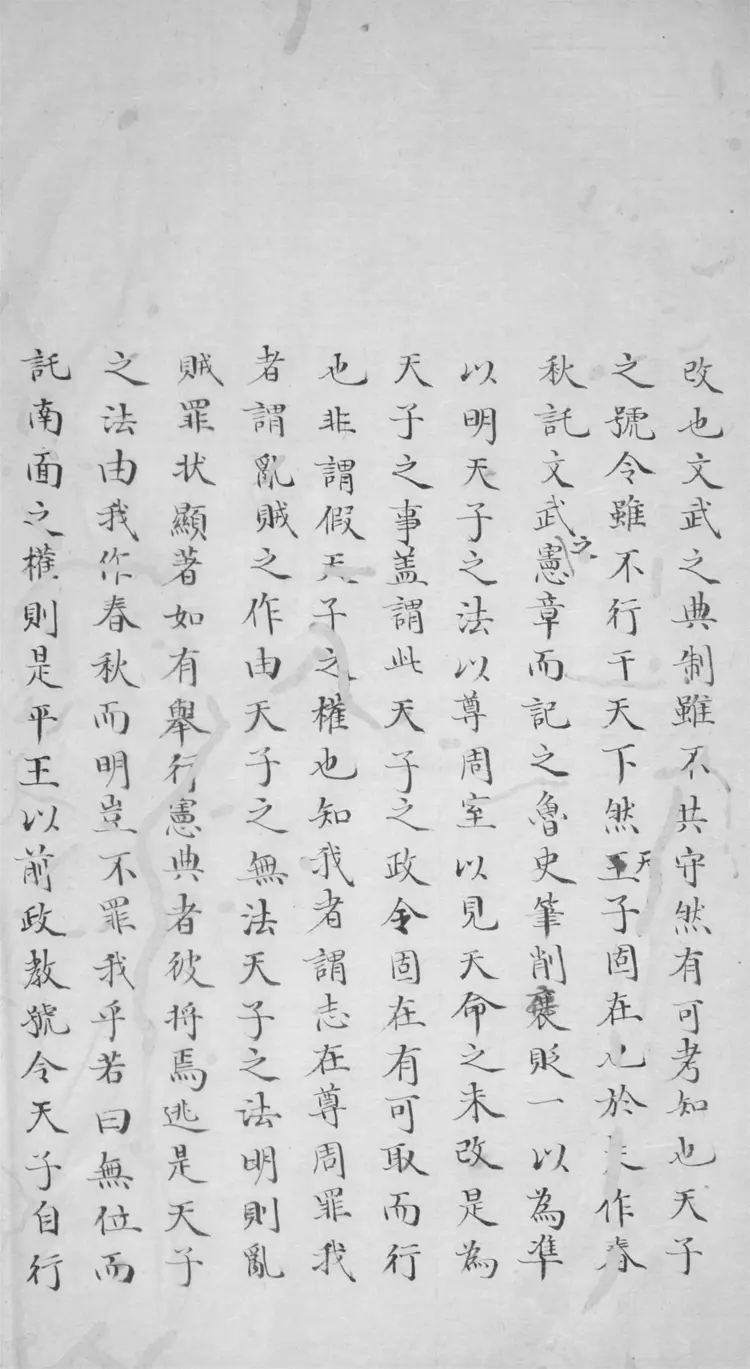 改也文武之典制雖不共守然有可考知也天子
之號令雖不行于天下然天子固在也於是作春
秋託文武之憲章而記之魯史筆削褒貶一以為準
以明天子之法以尊周室以見天命之未改是為
天子之事盖謂此天子之政令固在有可取而行
也非謂假天子之權也知我者謂志在尊周罪我
者謂亂賊之作由天子之無法天子之法明則亂
賊罪状顯著如有舉行憲典者彼将焉逃是天子
之法由我作春秋而明豈不罪我乎若曰無位而
託南面之權則是平王以前政教號令天子自行